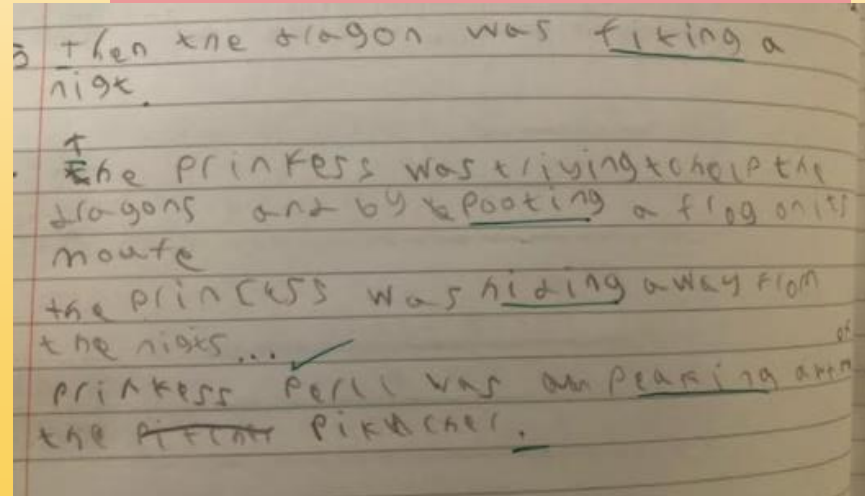 Then the dragon was fiting a
nigt.
The prinkess was triying to help the
dragons and by pooting a frog on its
moute
the princess was hiding away from
the nigts...
prinkess Perl was peaking
the Pikucher.